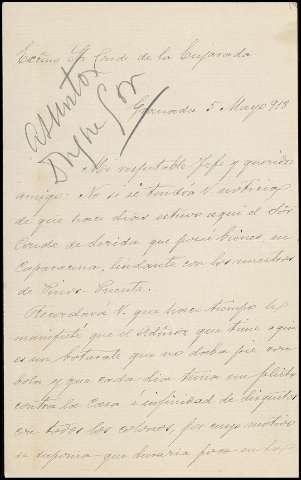 Excmo Sr Conde de la Enjarada
asuntos
Granada 5 Mayo 918
Mi respetable Jefe y querido
amigo: No sé si tendrá V. noticia
de que hace dias estuvo aquí el Sor
Conde de que posee bienes en
Caparacena, lindante con los nuestros
de Pinos-Puente.
Recordará V. que hace tiempo le
manifesté que el Admor que tiene aquí
es un botarate que no daba pie con
bola y que cada dia tenia un pleito
contra la Casa é infinidad de disgustos
con todos los colonos, por cuyo motivo
se suponia que duraria poco en